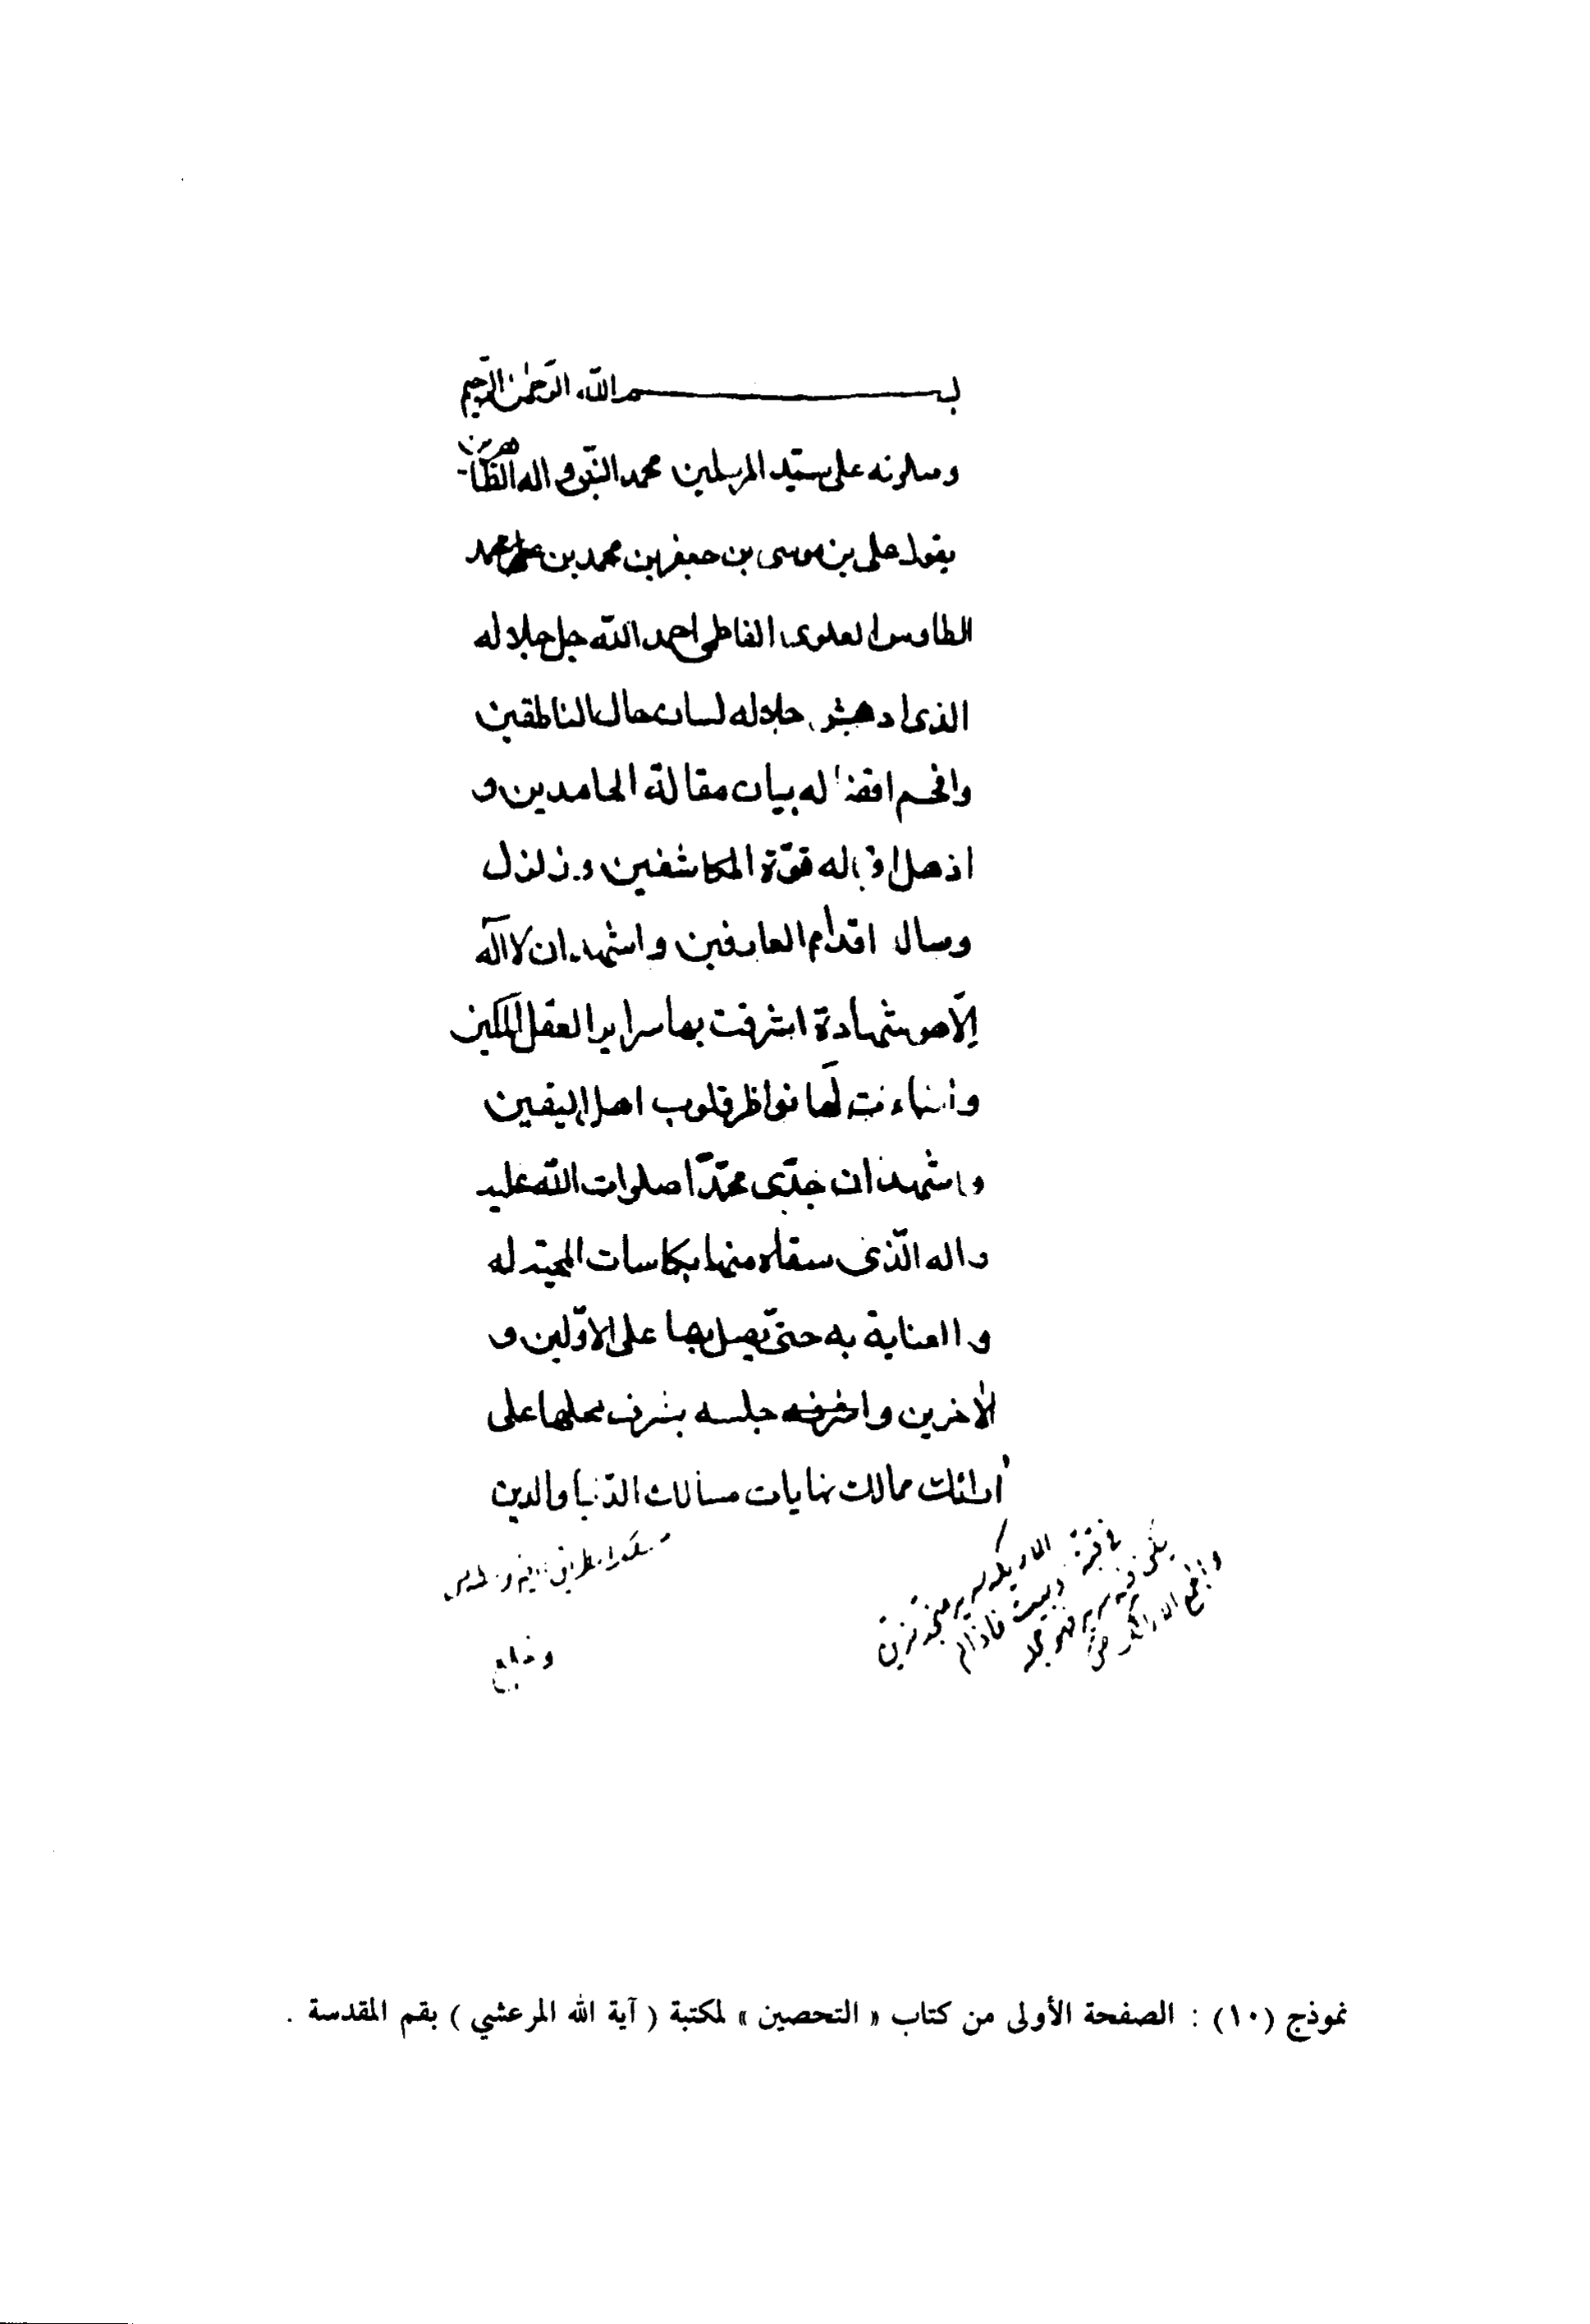 بسم الله الرحمن الرحيم
وسلامه على سيّد المرسلين محمد النبيّ واله الطاهرين
يقول على بن موسى بن جعفر بن محمد بن محمد
الطاوس العلوى الفاطمى احمد الله جل جلاله
الذى ادهش جلاله لسان حال الناطقين
وافحم افضاله بيان مقالة الحامدين و
اذهل اقباله قوّة المكاشفين و زلزل
وصال اقدام العارفين واشهد ان لا اله
إلّا هو شهادة اشرقت بها سراير العقل المكين
واضاءت لها نواظر قلوب اهل اليقين
واشهد ان جدّى محمّدًا صلوات الله عليه
واله الّذى سقاه منها بكاسات المحبّة له
والعناية به حتّى بها على الاوّلين و
الاخرين و جلسه بشرف محلها على
أرائك ممالك نهايات مسالك الدّنيا والدين
نموذج (١٠) : الصفحة الأولى من كتاب « التحصين » لمكتبة ( آية الله المرعشي ) بقم المقدسة .